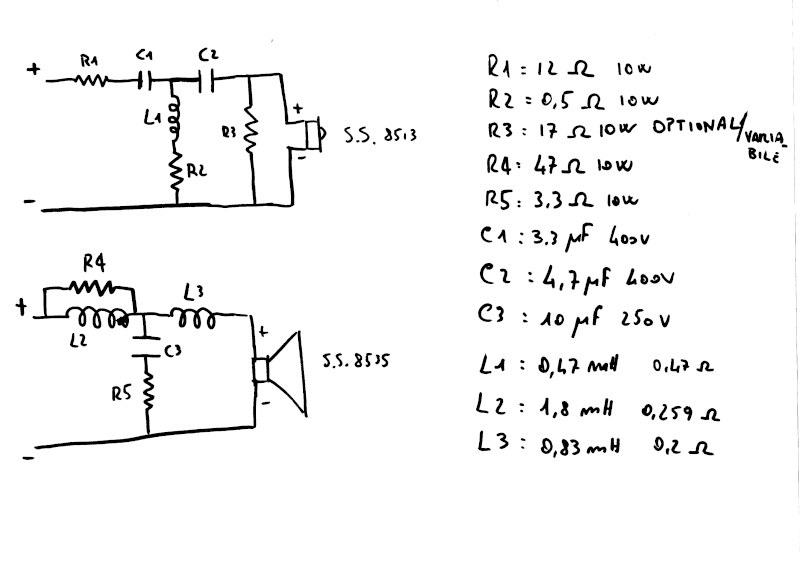 + R1 C1 C2
L1
R2
R3
+
-
S.S. 8513
-
R4
+ L2 L3
C3
R5
+
-
S.S. 8535
-
R1 : 12 Ω 10W
R2 = 0,5 Ω 10W
R3 : 17 Ω 10W OPTIONAL/VARIA_
BILE
R4: 47 Ω 10W
R5: 3,3 Ω 10W
C1 : 3.3 μF 400V
C2 : 4,7 μF 400V
C3 : 10 μF 250V
L1 : 0,47 mH 0,47 Ω
L2 : 1,8 mH 0,259 Ω
L3 : 0,83 mH 0,2 Ω